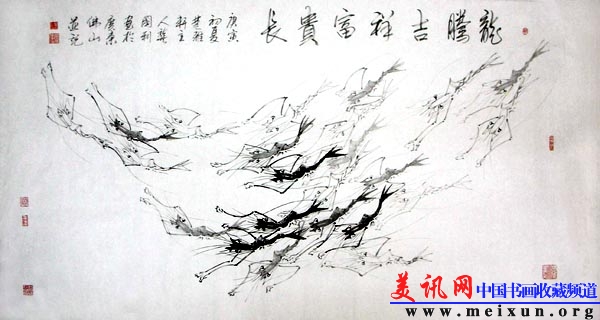 龍騰吉祥富貴長
庚寅
初夏
軒主
国利
畫於
廣東
佛山
美讯网 中国书画收藏频道
www.meixun.org